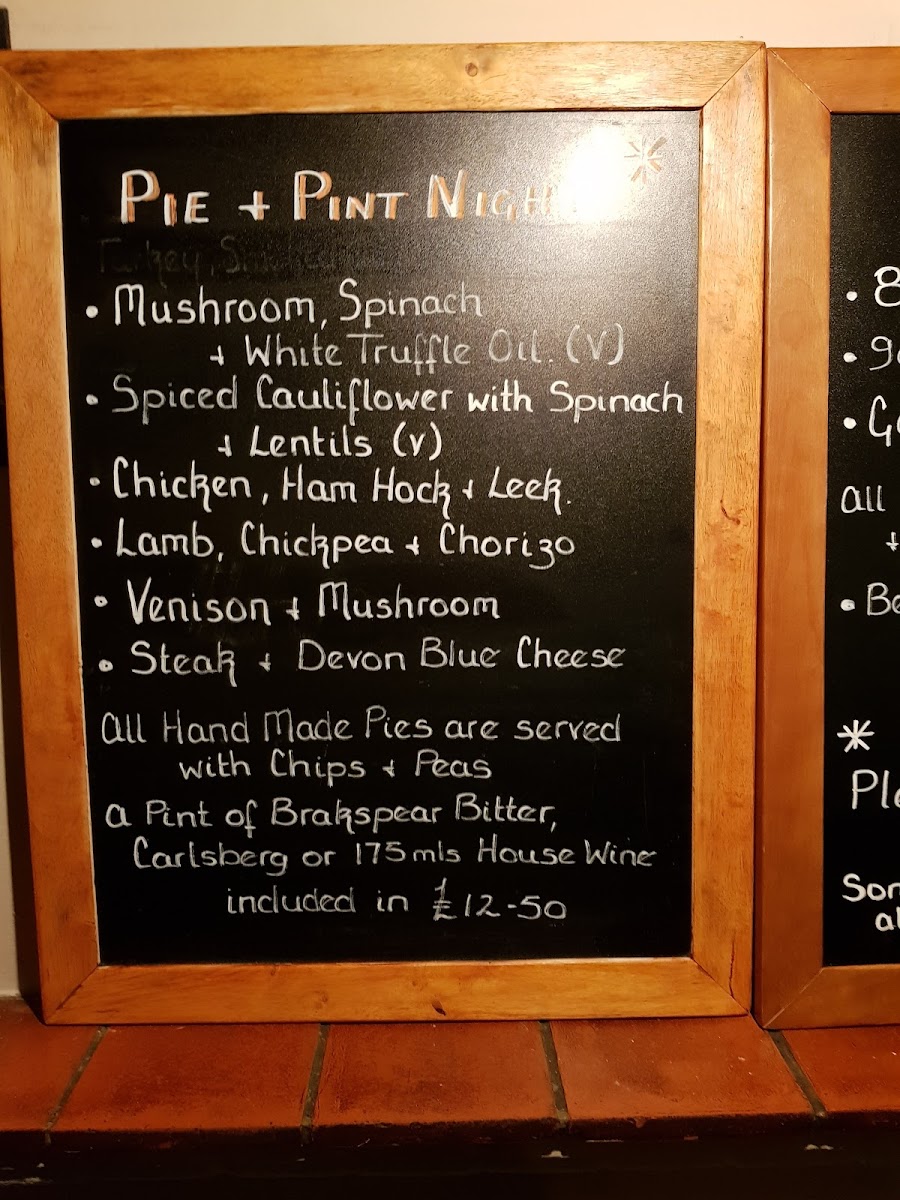 PIE + PINT NIGH
*
Turkey,
• Mushroom, Spinach
+ White Truffle Oil. (V)
• Spiced Cauliflower with Spinach
+ Lentils (v)
• Chicken, Ham Hock + Leek.
• Lamb, Chickpea + Chorizo
• Venison + Mushroom
• Steak + Devon Blue Cheese
all Hand Made Pies are served
with Chips + Peas
a Pint of Brakspear Bitter,
Carlsberg or 175mls House Wine
included in £12-50
• 8
•
•
all
+
•
*